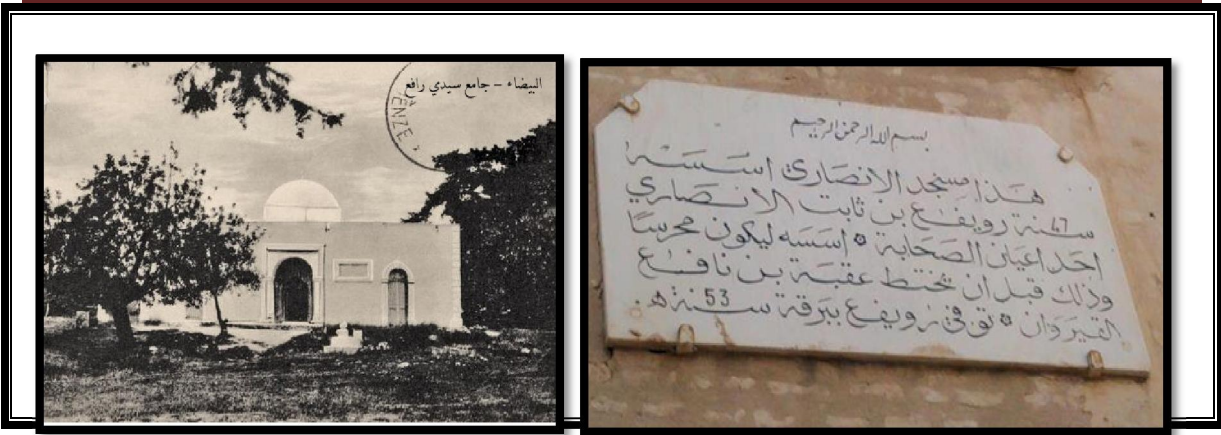 البيضاء – جامع سيدي رافع
ENZE
بسم الله الرحمن الرحيم
هذا مسجد الانصاري اسسه
سنة 47 رويفع بن ثابت الانصاري
احد اعيان الصحابة * اسسه ليكون محرسا
وذلك قبل ان يختط عقبة بن نافع
القيروان * توفي رويفع ببرقة سنة 53 هـ